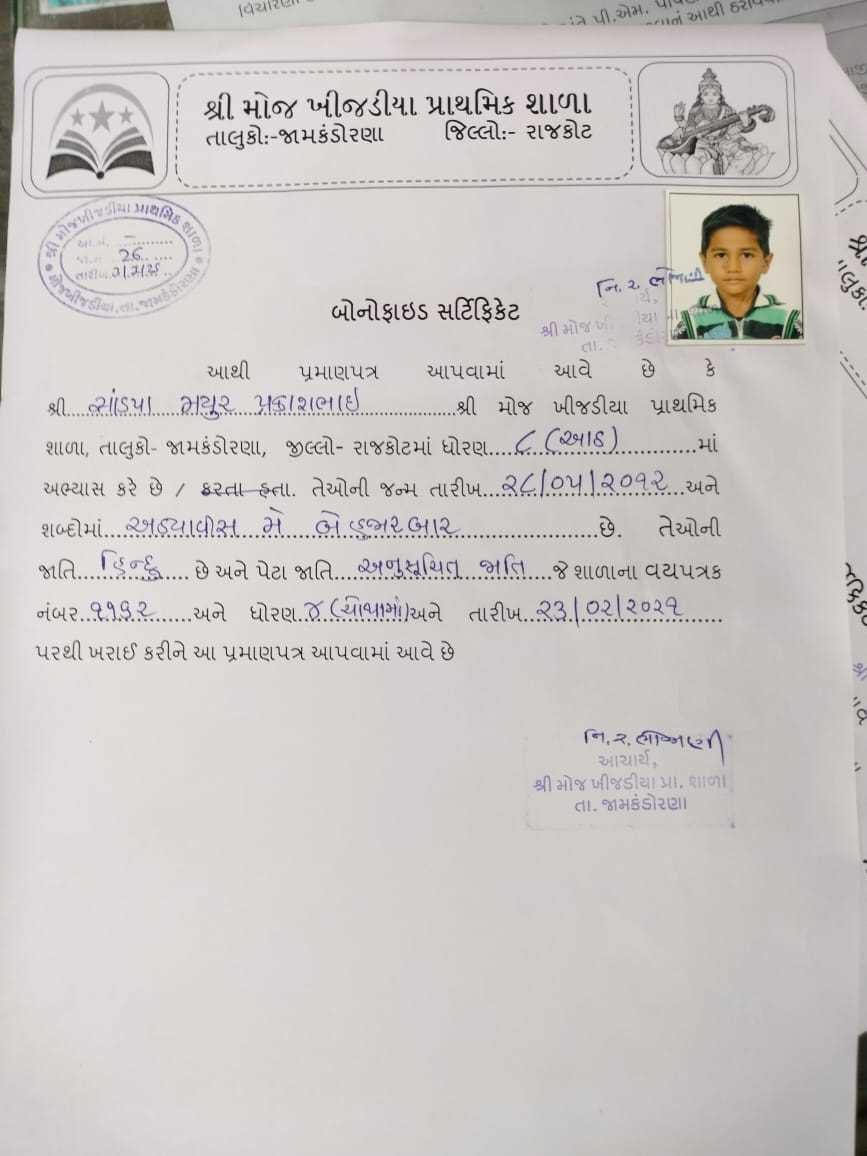 વિચારણા
પી.એમ.
આથી
શ્રી મોજ ખીજડીયા પ્રાથમિક શાળા
તાલુકો:-જામકંડોરણા જિલ્લો:- રાજકોટ
શ્રી મોજખીજડીયા પ્રાથમિક શાળા
26
તારીખ
મોજખીજડીયા, તા. જામકંડોરણા
નિ. ર.
બોનોફાઇડ સર્ટિફિકેટ
શ્રી મોજ
તા.
આથી પ્રમાણપત્ર આપવામાં આવે છે કે
શ્રી....સાંડપા મયુર પ્રકાશભાઇ..............શ્રી મોજ ખીજડીયા પ્રાથમિક
શાળા, તાલુકો- જામકંડોરણા, જીલ્લો- રાજકોટમાં ધોરણ....૮ (આઠ)..............માં
અભ્યાસ કરે છે / કરતા હતા. તેઓની જન્મ તારીખ...૨૮/૦૫/૨૦૧૨...અને
શબ્દોમાં....અઠયાવીસ મે બે હજાર બાર...................છે. તેઓની
જાતિ......હિન્દુ.... છે અને પેટા જાતિ....અનુસૂચિત જાતિ....જે શાળાના વયપત્રક
નંબર..૧૧૬૨......અને ધોરણ..૪ (ચોથામાં)અને તારીખ..૨૩/૦૨/૨૦૨૧......
પરથી ખરાઈ કરીને આ પ્રમાણપત્ર આપવામાં આવે છે
નિ. ર.
આચાર્ય,
શ્રી મોજ ખીજડીયા પ્રા. શાળા
તા. જામકંડોરણા